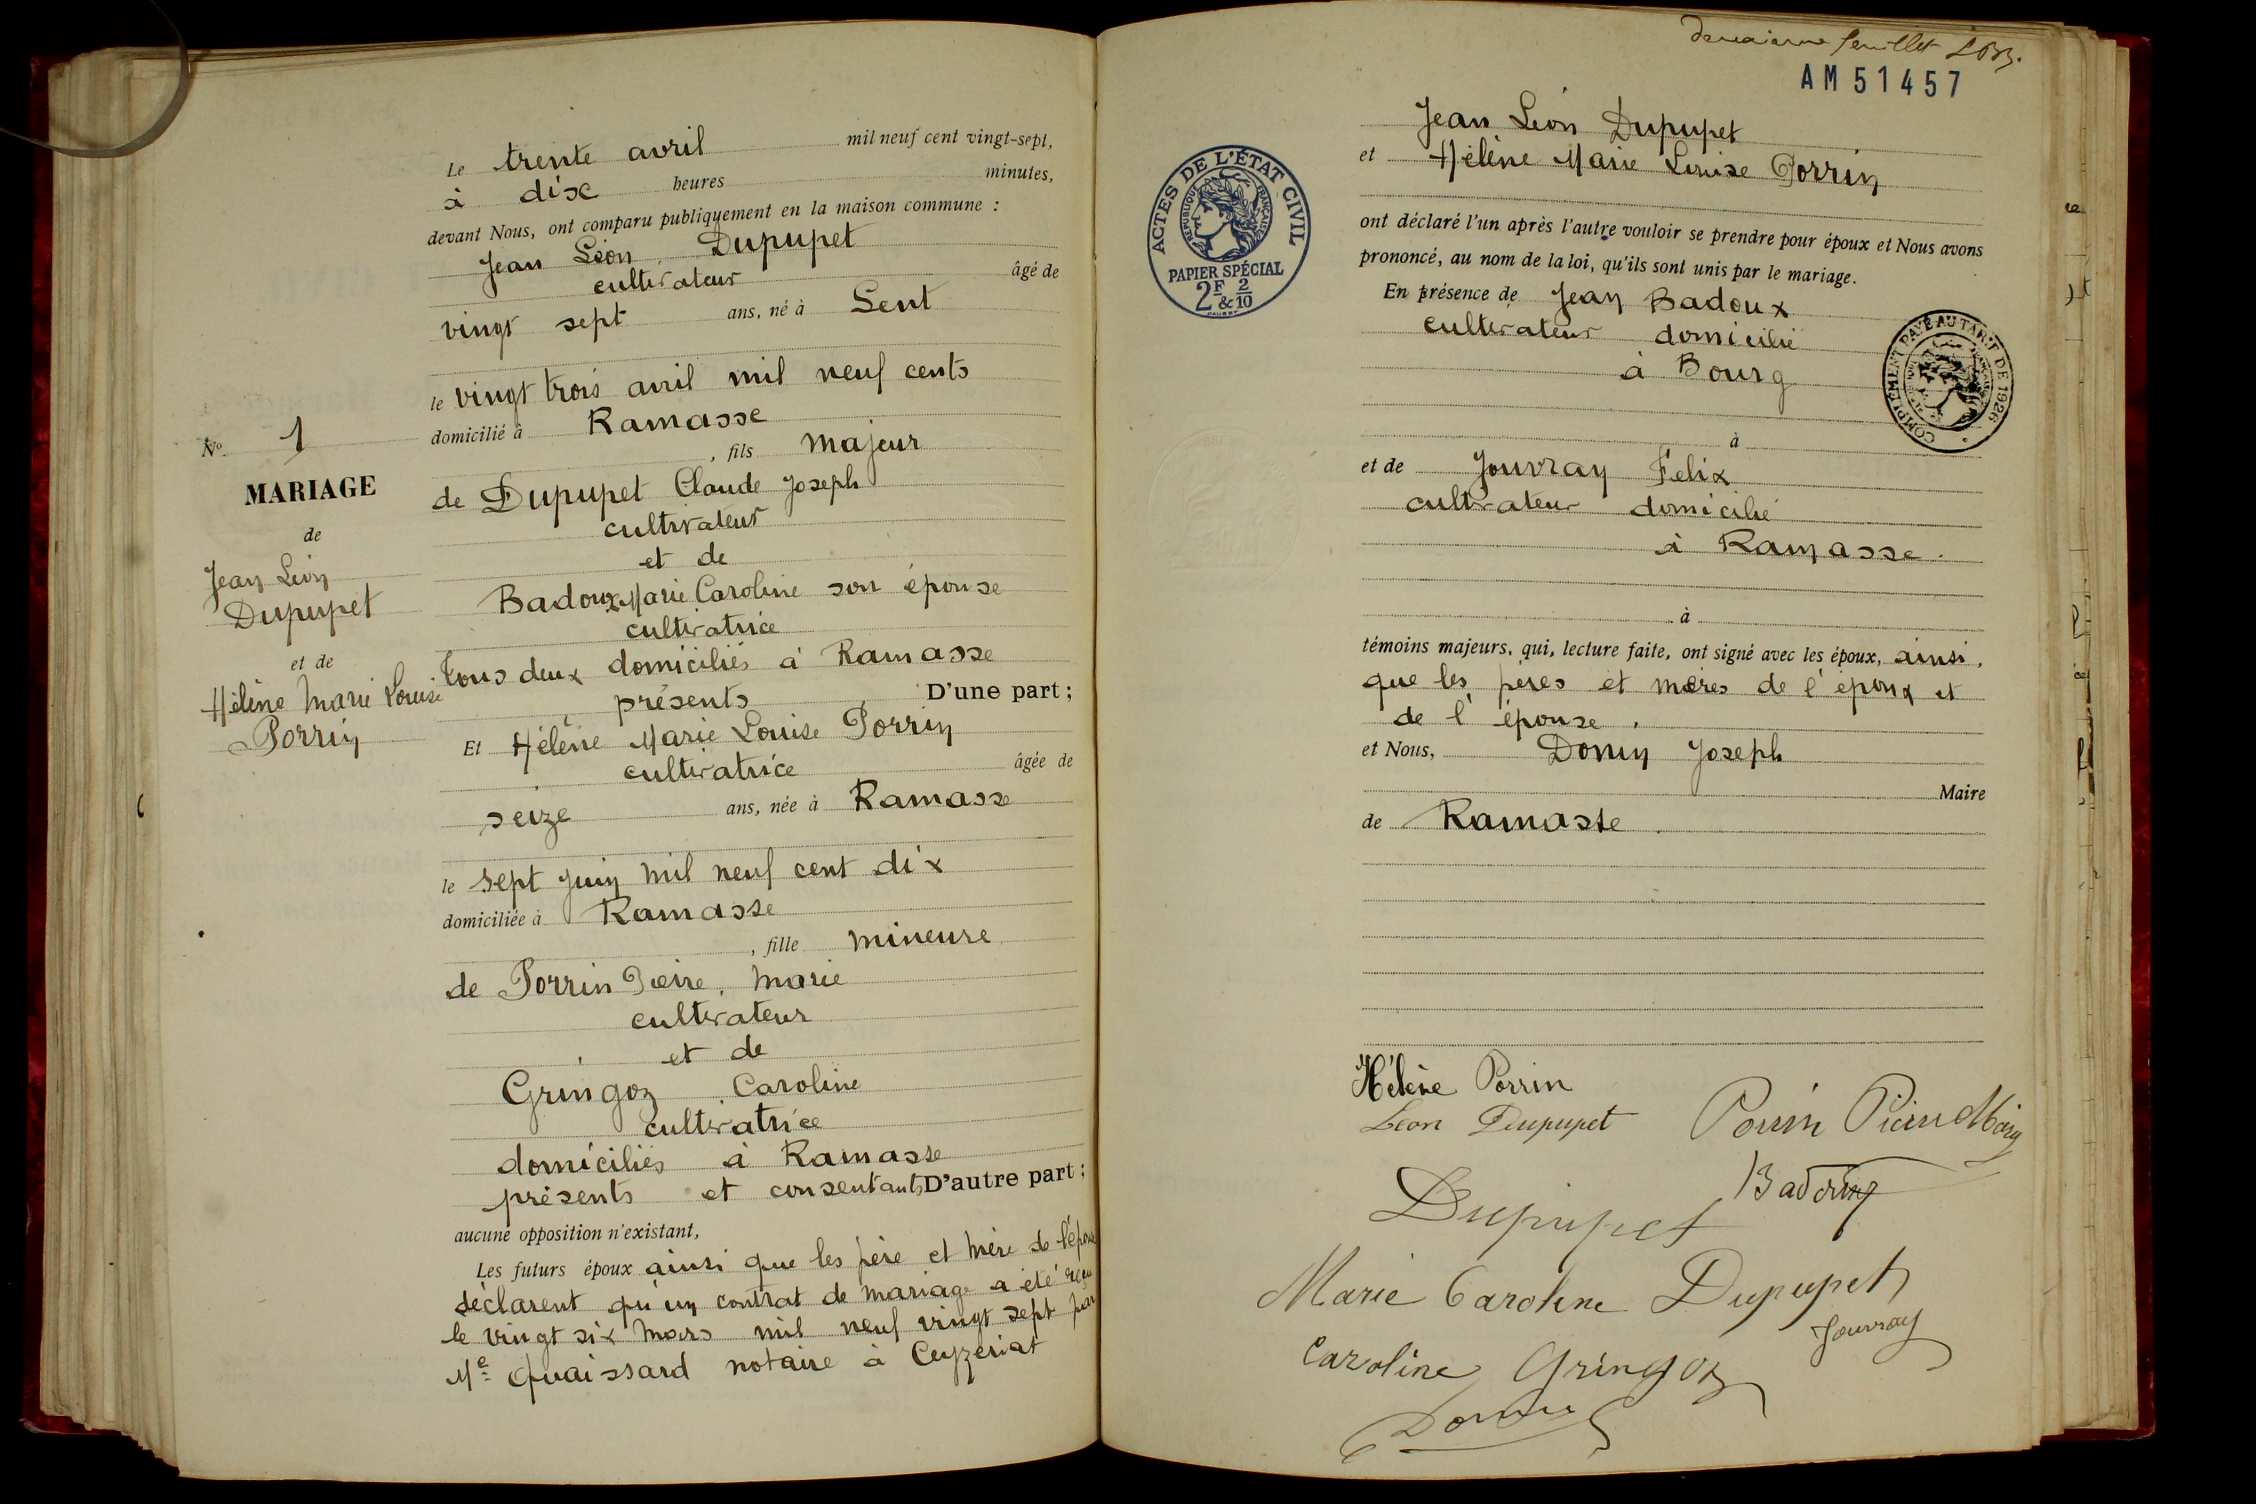 Le trente avril mil neuf cent vingt-sept,
à dix heures minutes,
devant Nous, ont comparu publiquement en la maison commune :
Jean Léon Dupupet
cultivateur âgé de
vingt sept ans, né à Lent
le vingt trois avril mil neuf cents
domicilié à Ramasse
, fils majeur
de Dupupet Claude Joseph
cultivateur
et de
Badoux Marie Caroline son épouse
cultivatrice
tous deux domiciliés à Ramasse
présents D'une part ;
Et Hélène Marie Louise Porrin
cultivatrice âgée de
seize ans, née à Ramasse
le sept juin mil neuf cent dix
domiciliée à Ramasse
, fille mineure
de Porrin Pierre, Marie
cultivateur
et de
Gringoz Caroline
cultivatrice
domiciliés à Ramasse
présents et consentants D'autre part ;
aucune opposition n'existant,
Les futurs époux ainsi que les père et mère de l'épouse
déclarent qu'un contrat de mariage a été reçu
le vingt six mars mil neuf vingt sept par
Me Quaissard notaire à Ceyzériat
No 1
MARIAGE
de
Jean Léon
Dupupet
et de
Hélène Marie Louise
Porrin
deuxième feuillet
AM 51457
Jean Léon Dupupet
et Hélène Marie Louise Porrin
ont déclaré l'un après l'autre vouloir se prendre pour époux et Nous avons
prononcé, au nom de la loi, qu'ils sont unis par le mariage.
En présence de Jean Badoux
cultivateur domicilié
à Bourg
à
et de Jouvray Felix
cultivateur domicilié
à Ramasse.
à
témoins majeurs, qui, lecture faite, ont signé avec les époux, ainsi,
que les pères et mères de l'époux et
de l'épouse.
et Nous, Donin Joseph
Maire
de Ramasse
ACTES DE L'ÉTAT CIVIL
RÉPUBLIQUE FRANÇAISE
PAPIER SPÉCIAL
2F & 2/10
COMPLÉMENT PAYÉ AU TARIF DE 1926
Hélène Porrin
Léon Dupupet
Porrin Pierre Marie
Badoux
Dupupet
Marie Caroline Dupupet
Jouvray
Caroline Gringoz
Donin